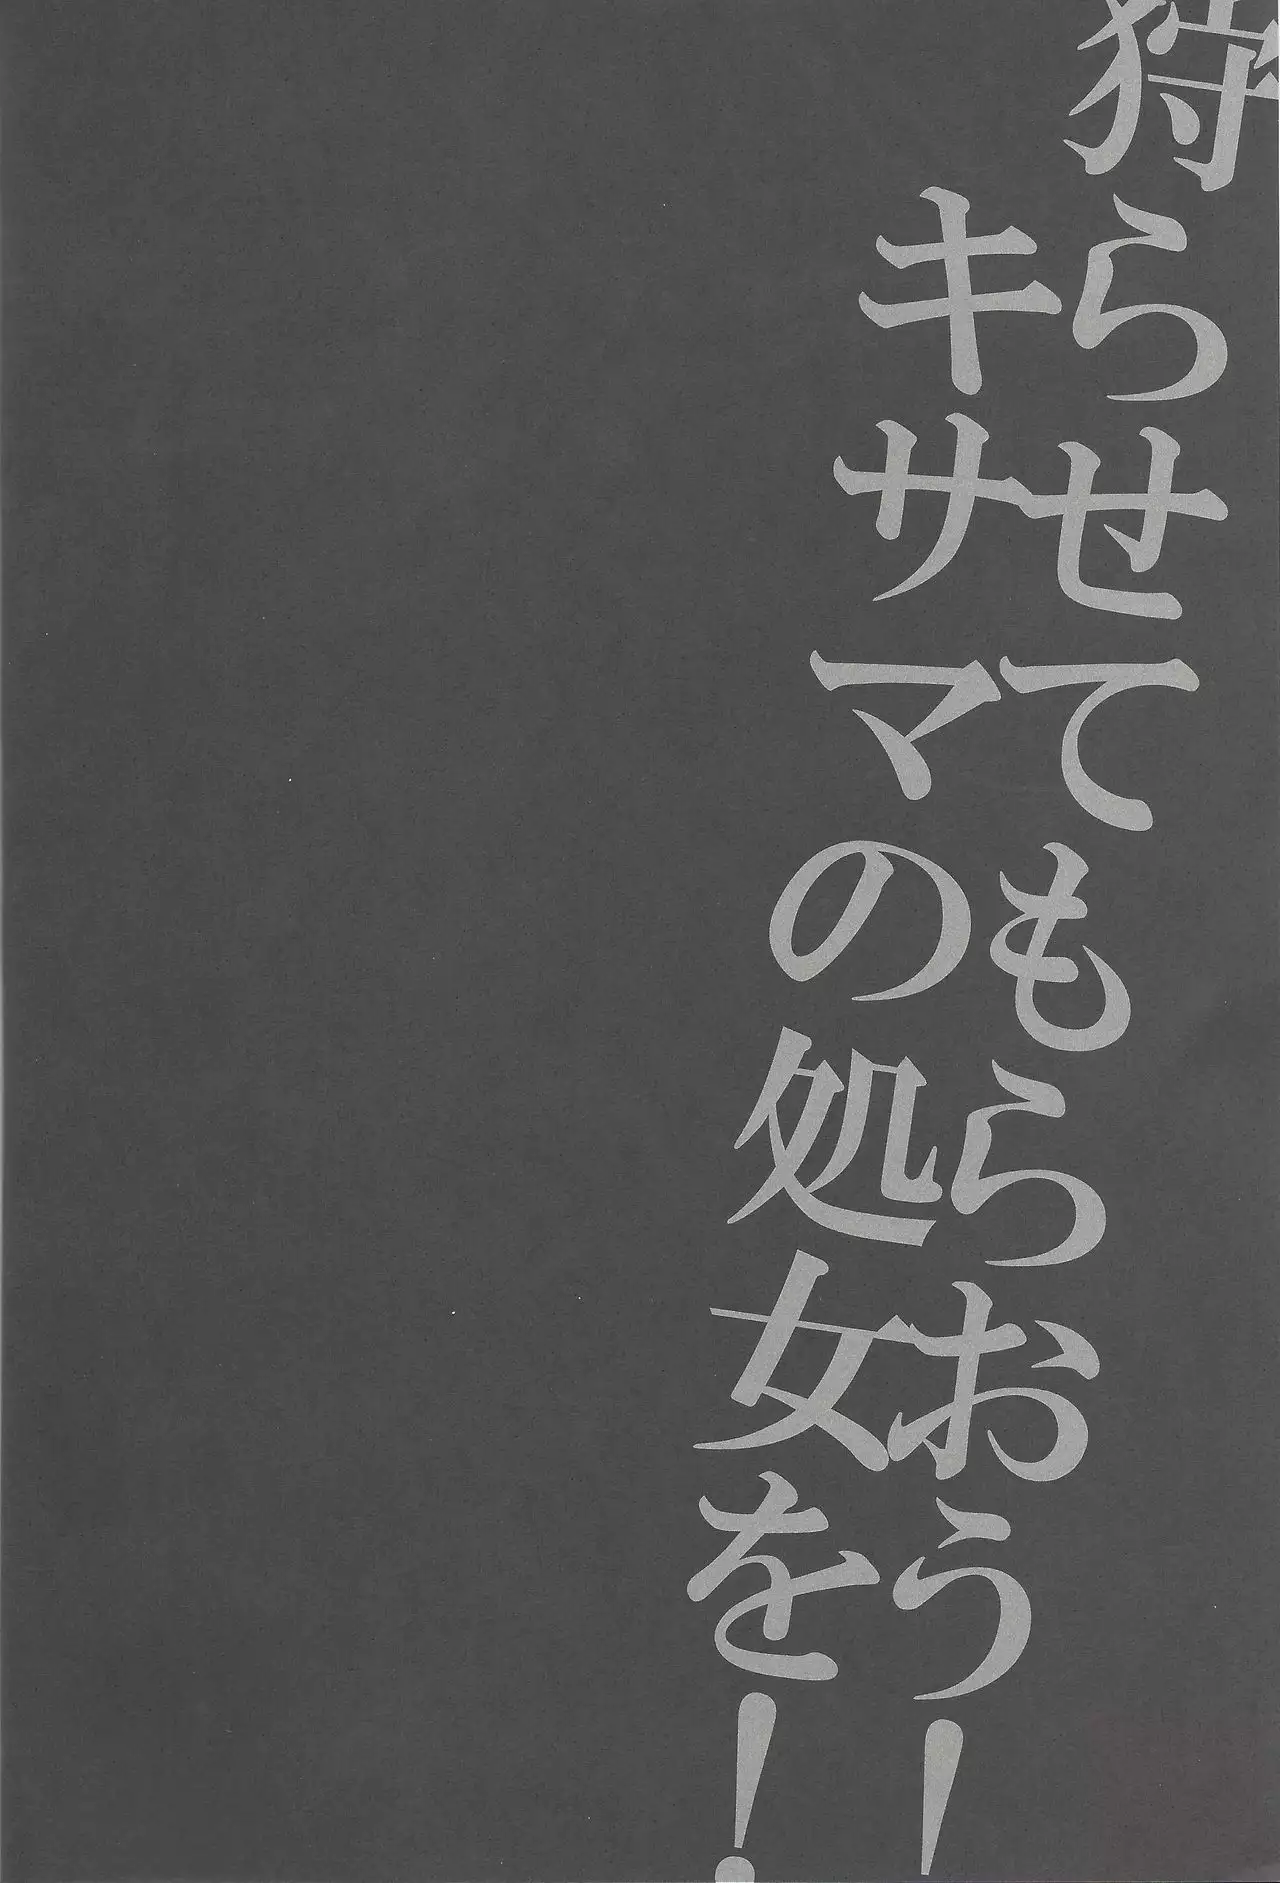 狩らせてもらおうー
キサマの処女を！